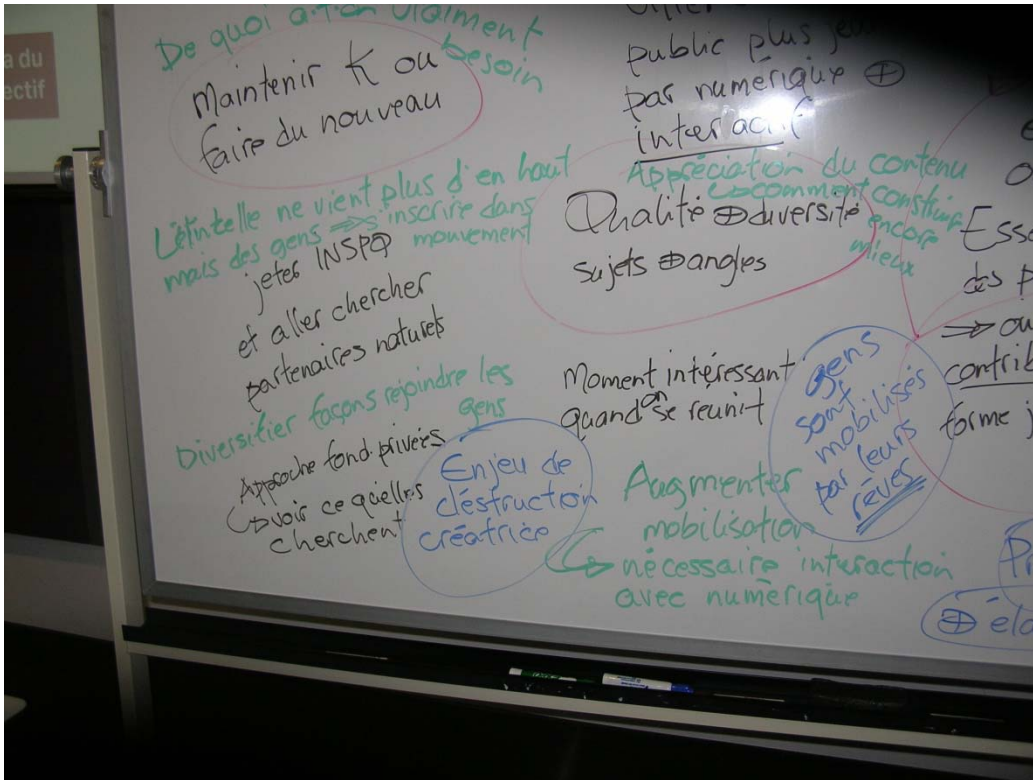 a du
ectif
De quoi a-t-on vraiment
besoin
Maintenir K ou
faire du nouveau
L'étintelle ne vient plus d'en haut
mais des gens ⇒ s'inscrire dans
mouvement
jeter INSPQ
et aller chercher
partenaires naturels
Diversifier façons rejoindre les
gens
Approche fond. privées
↳ voir ce qu'elles
cherchent
Enjeu de
déstruction
créatrice
public plus
par numérique ⊕
interactif
Appréciation du contenu
↳ comment construire
encore
mieux
Qualité ⊕ diversité
sujets ⊕ angles
Moment intéressant
quand on se réunit
gens
sont
mobilisés
par leurs
rêves
Augmenter
mobilisation
↳ nécessaire interaction
avec numérique
Essa
des p
⇒ ou
contrib
forme j
Pr
⊕ éla